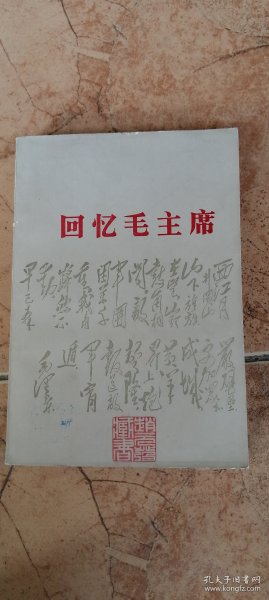 回忆毛主席
西江月
井冈山
山下旌旗
在望山头
鼓角相
闻敌
军围
困万千
重我自
岿然不
动
早已森
严壁垒
更加众志
成城
黄洋
界上炮
声隆
报道敌
军宵
遁
毛泽东
藏书
孔夫子旧书网
www.kongfz.com